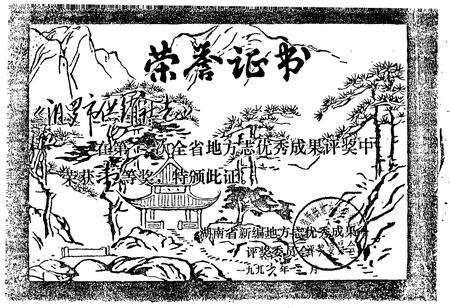 荣誉证书
汨罗市
在第 次全省地方志优秀成果评奖中
荣获 等奖，特颁此证。
湖南省新编地方志优秀成果
评奖委员会
一九九六年 月